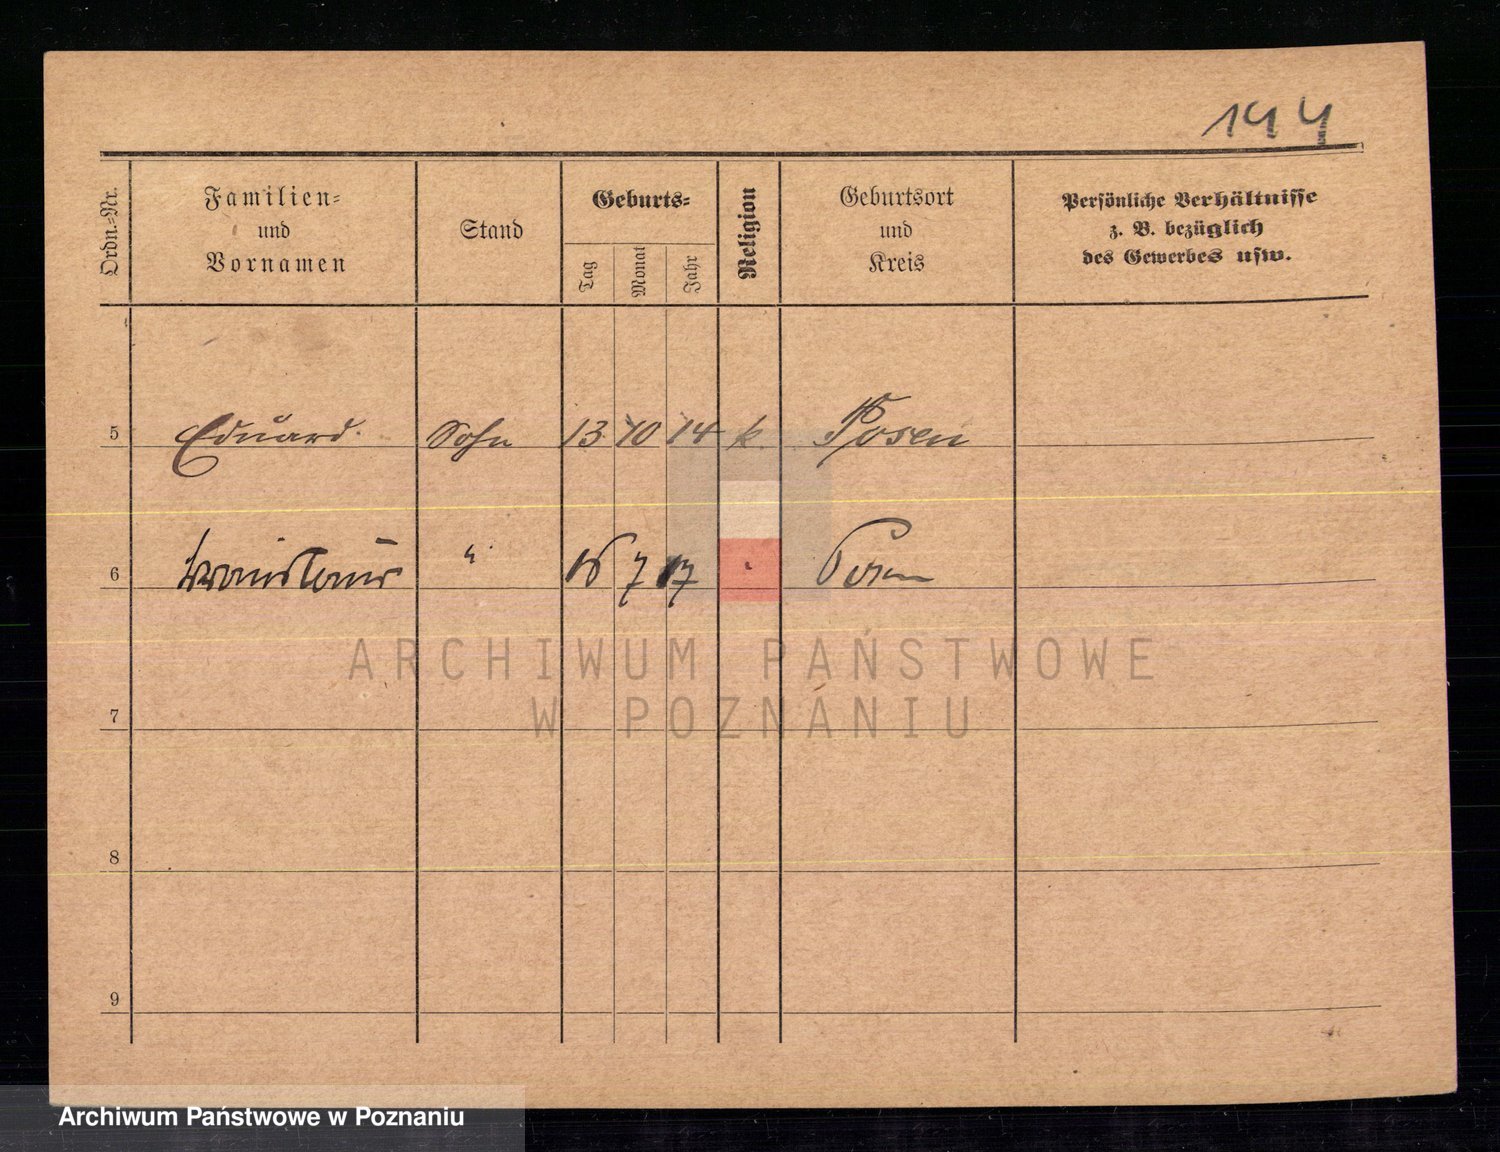 144
Ordn.-Nr.
Familien-
und
Vornamen
Stand
Geburts-
Tag
Monat
Jahr
Religion
Geburtsort
und
Kreis
Persönliche Verhältnisse
z. B. bezüglich
des Gewerbes usw.
5 Eduard Sohn 13 10 14 k. Posen
6 " 16 7 17 " Posen
ARCHIWUM PAŃSTWOWE
W POZNANIU
7
8
9
Archiwum Państwowe w Poznaniu